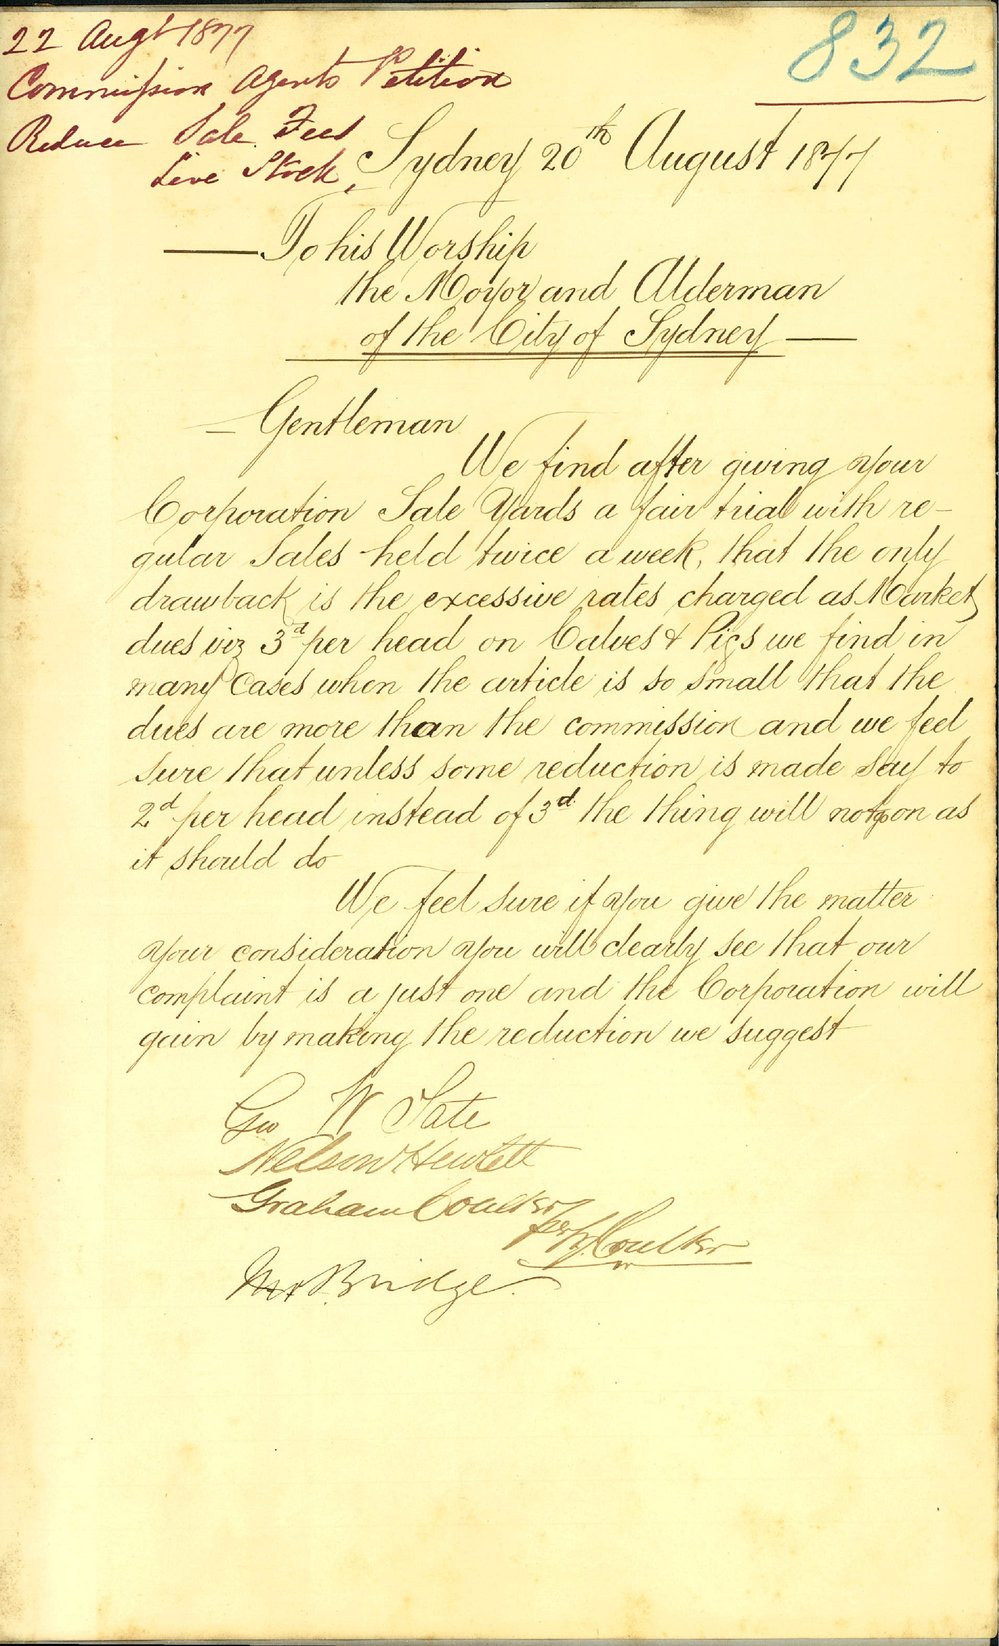 22 Augt 1877
832
Commission Agents Petition
Reduce Sale Fees
Live Stock,
Sydney 20th August 1877
To his Worship
the Mayor and Alderman
of the City of Sydney
Gentleman
We find after giving your
Corporation Sale Yards a fair trial with re-
gular Sales held twice a week, that the only
drawback is the excessive rates charged as Market
dues viz 3d per head on Calves & Pigs we find in
many Cases when the article is so small that the
dues are more than the commission and we feel
sure that unless some reduction is made Say to
2d per head instead of 3d the thing will not go on as
it should do
We feel sure if you give the matter
your consideration you will clearly see that our
complaint is a just one and the Corporation will
gain by making the reduction we suggest
Geo W Tate
Nelson Hewlett
Graham Coulter
per Coulter
Bridge